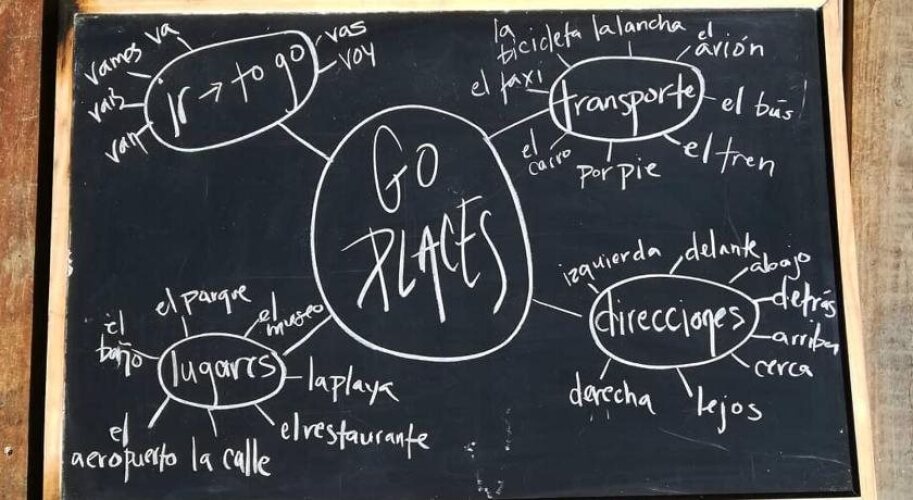 GO
PLACES
Ir → to go
va
vamos
vais
van
vas
voy
transporte
la
bicicleta
la lancha
el
avión
el taxi
el bús
el
carro
por pie
el tren
lugares
el parque
el
museo
el
baño
la playa
el
aeropuerto
la calle
el restaurante
direcciones
izquierda
delante
abajo
detrás
arriba
cerca
derecha
lejos